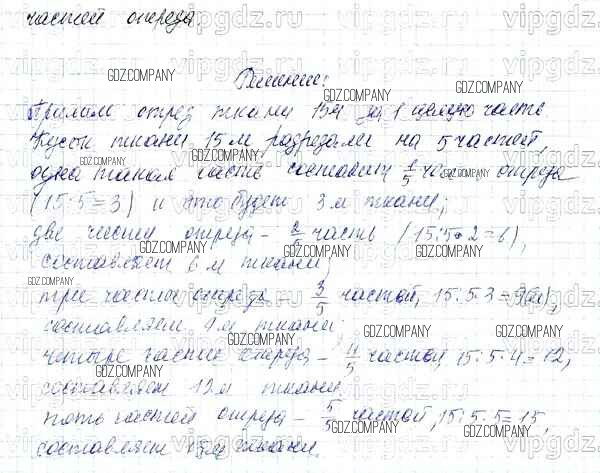 частей отреза.
Решение:
Примем отрез ткани 15м за 1 целую часть.
Кусок ткани 15 м разрезали на 5 частей,
одна такая часть составит 1/5 часть отреза
(15:5=3) и это будет 3 м ткани;
две части отреза - 2/5 часть (15:5·2=6),
составляет 6 м ткани;
три части отреза - 3/5 частей, 15:5·3=9(м),
составляет 9м ткани;
четыре части отреза - 4/5 частей, 15:5·4=12,
составляет 12м ткани
пять частей отреза - 5/5 частей, 15:5·5=15,
составляет 15м ткани.
vipgdz.ru
GDZ.COMPANY